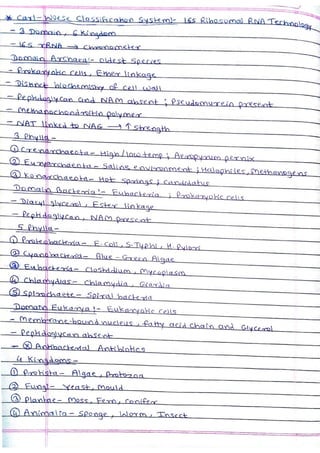 * Carl-Woese Classification System:- 16S Ribosomal RNA Technology
- 3 Domain, 6 Kingdom
- 16S rRNA → chronometer
Domain Archaea:- Oldest Species
- Prokaryotic cells, Ether linkage
- Distinct biochemistry of cell wall
- Peptidoglycan and NAM absent ; Pseudomurein present
- Methanochondroitin polymer
- NAT linked to NAG → ↑ strength
3 Phylla-
① Crenarchaeota- High/low temp ; Aeropyrum pernix
② Euryarchaeota- Saline environment ; Halophiles, Methanogens
③ Korarchaeota- Hot springs ; Candidatus
Domain Bacteria:- Eubacteria ; Prokaryotic cells
- Diacyl glycerol, Ester linkage
- Peptidoglycan, NAM present
5 Phylla-
① Proteobacteria- E. Coli, S. Typhi, H. Pylori
② Cyanobacteria- Blue-Green Algae
③ Eubacteria- Clostridium, Mycoplasm
④ Chlamydias- Chlamydia, Giardia
⑤ Spirochaete- Spiral bacteria
Domain Eukarya:- Eukaryotic cells
- Membrane-bound nucleus, fatty acid chain and Glycerol
- Peptidoglycan absent
- ⊗ Antibacterial Antibiotics
4 Kingdoms-
① Protista- Algae, Protozoa
② Fungi- Yeast, Mould
③ Plantae- Moss, Fern, Conifer
④ Animalia- Sponge, Worm, Insect